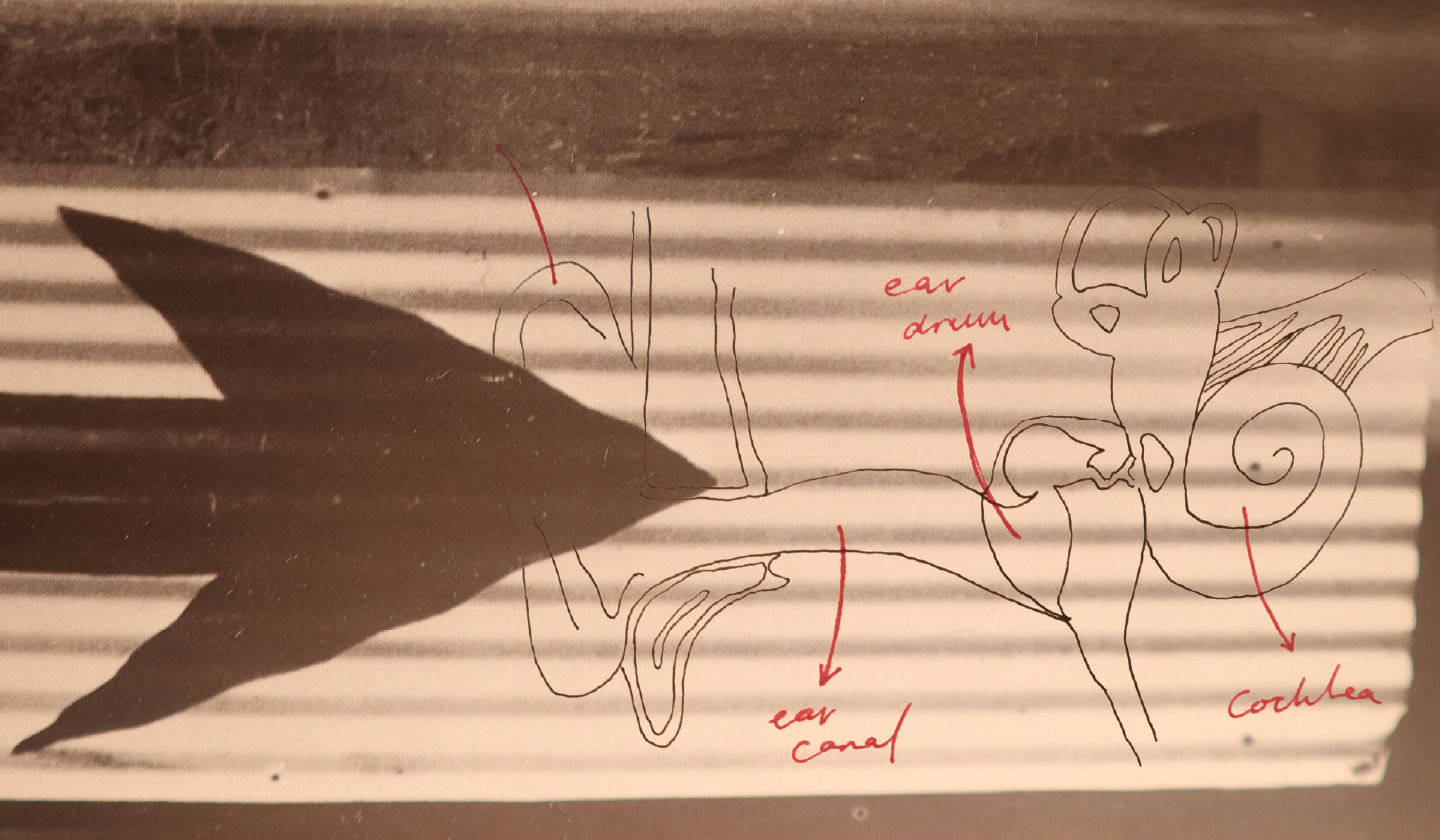 ear
drum
ear
canal
Cochlea